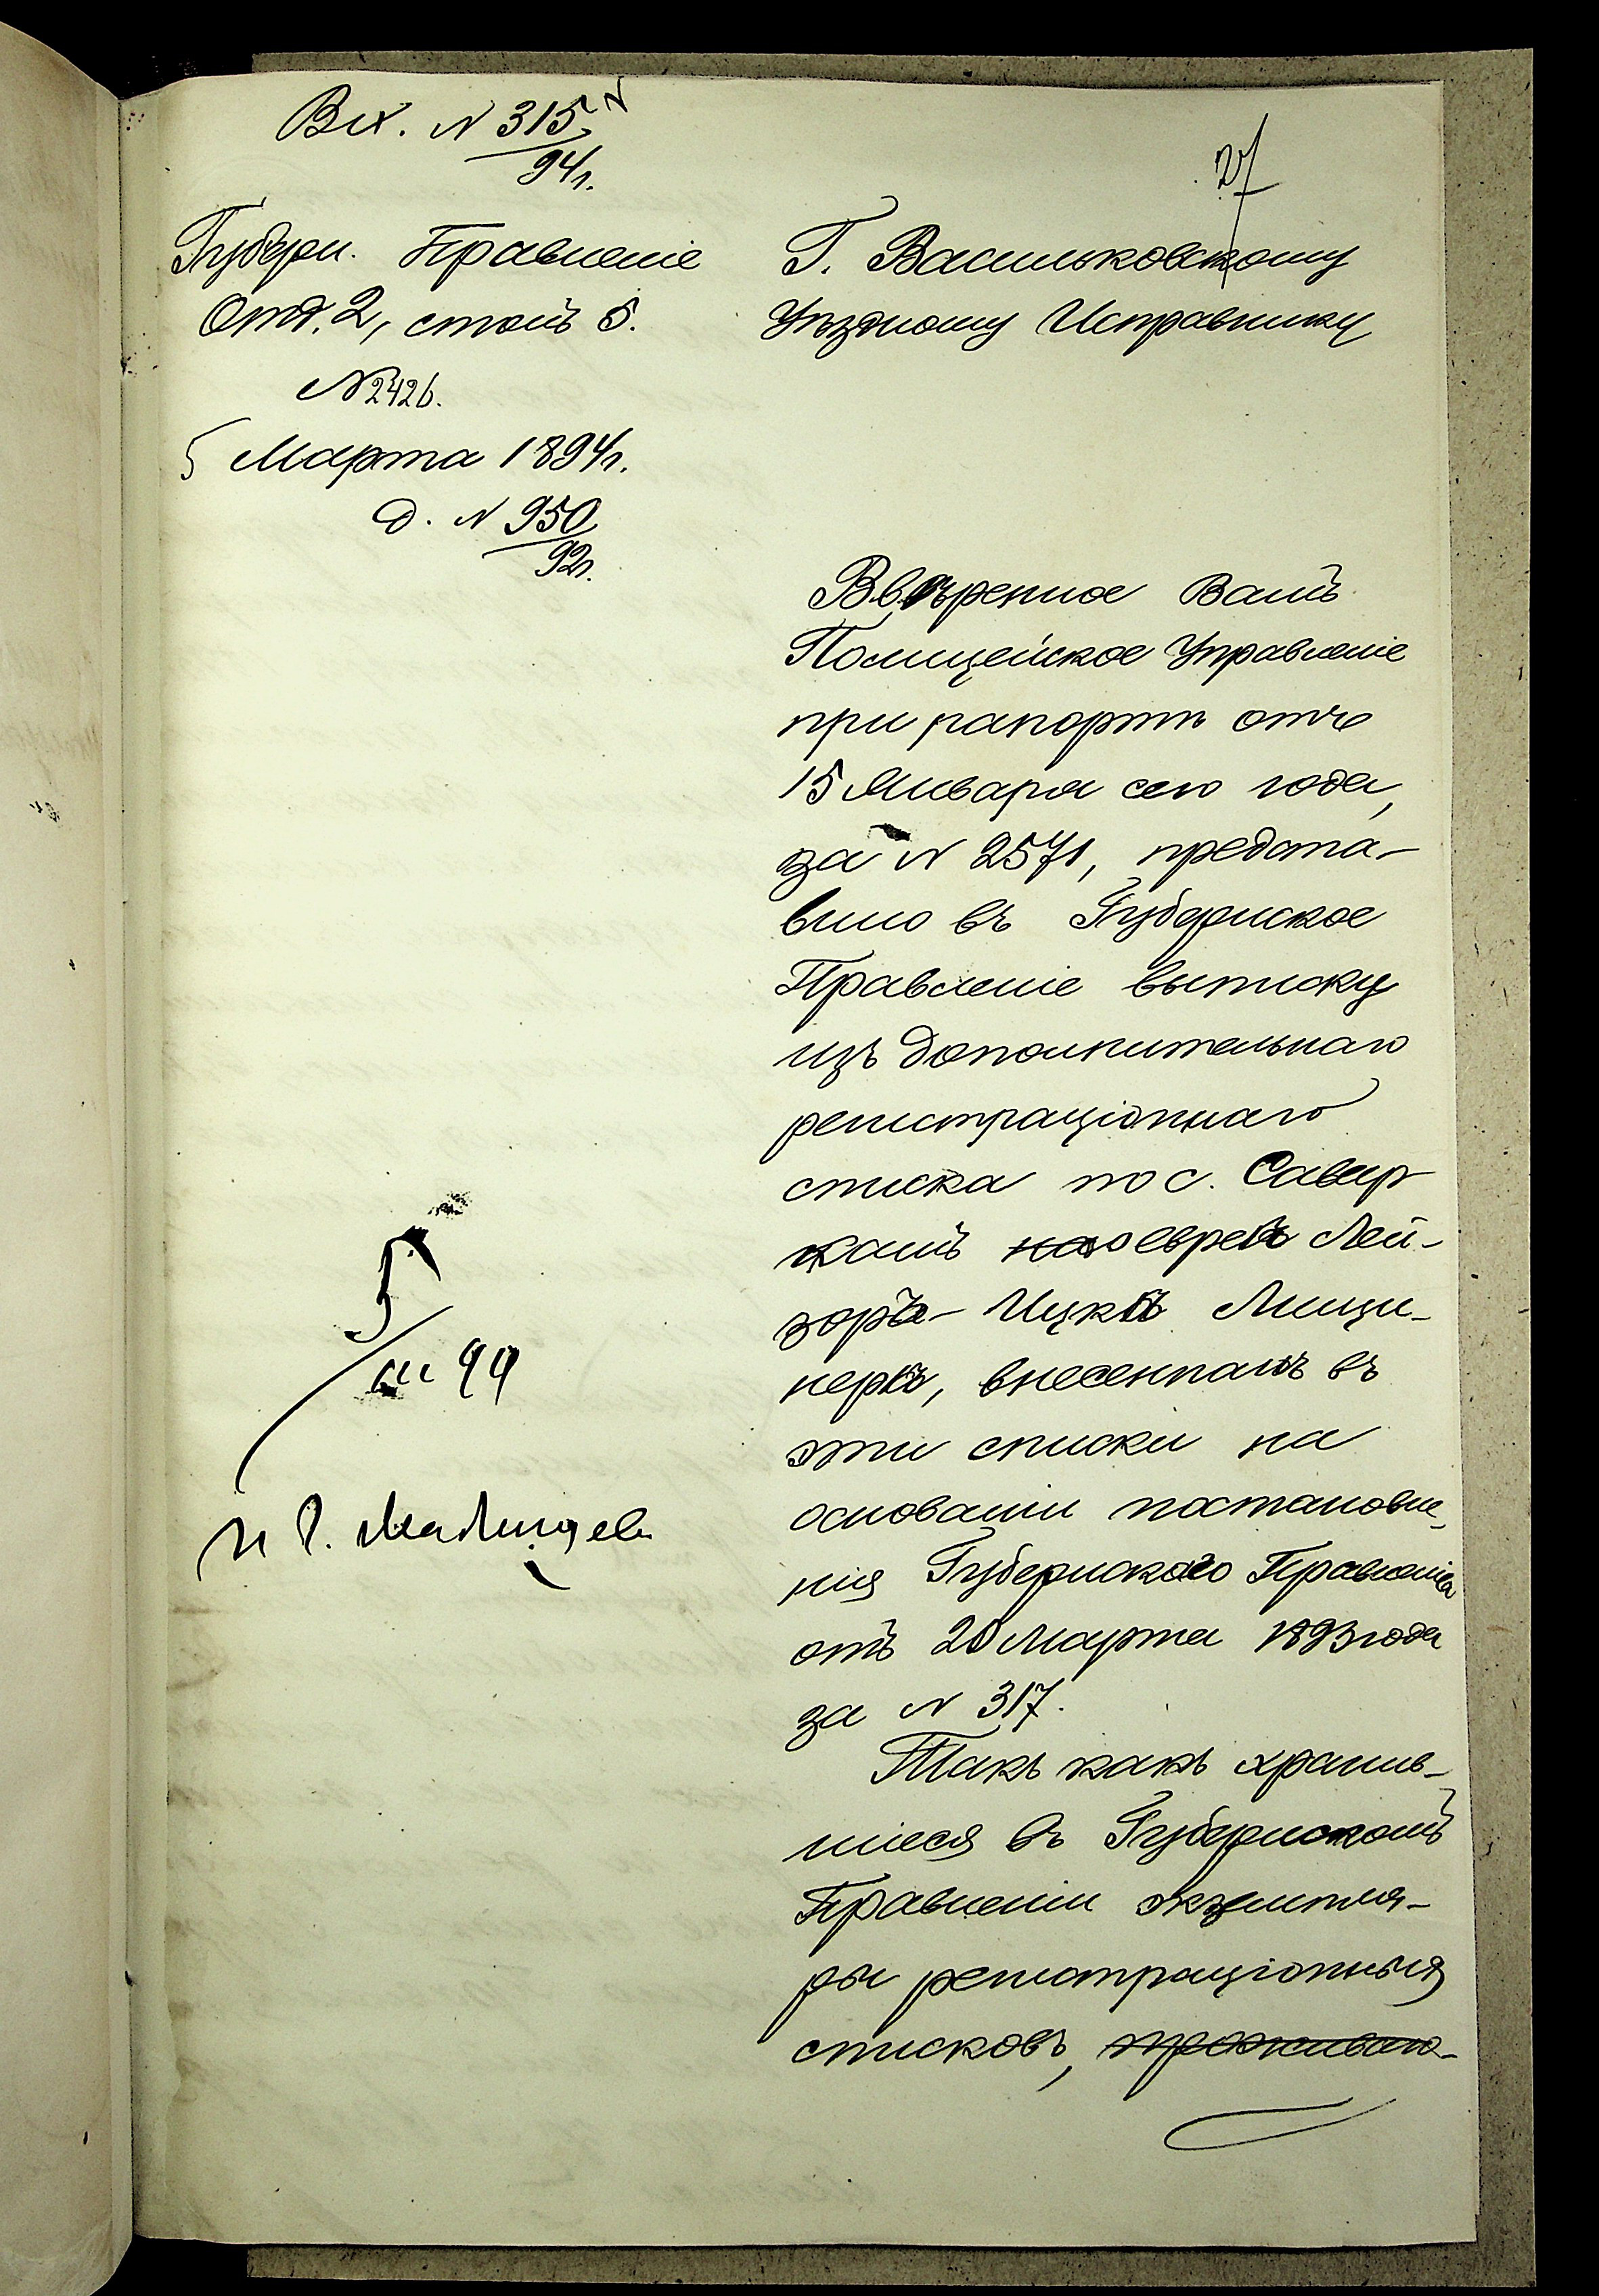 Вх. N 315
94 г.
27
Губерн. Правленіе
Отд. 2, столъ 5.
N 2426.
5 Марта 1894 г.
д. N 950
92 г.
Г. Васильковскому
Уѣздному Исправнику
Ввѣренное Вамъ
Полицейское Управленіе
при рапортѣ отъ
15 Января сего года,
за N 2571, предста-
вило въ Губернское
Правленіе выписку
изъ дополнительнаго
регистраціоннаго
списка по с. Савар
камъ о евреѣ Лей-
зорѣ-Ицкѣ Лищи-
нерѣ, внесенномъ въ
эти списки на
основаніи постановле-
нія Губернского Правленія
отъ 20 Марта 1893 года
за N 317.
Такъ какъ хранив-
шіеся въ Губернскомъ
Правленіи экземпля-
ры регистраціонныя
списковъ,
5
III 94